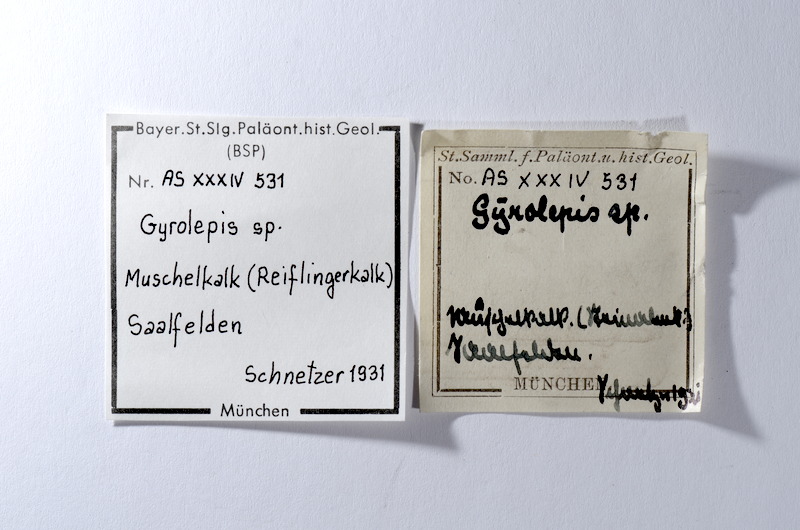 Bayer.St.Slg.Paläont.hist.Geol.
(BSP)
Nr. AS XXXIV 531
Gyrolepis sp.
Muschelkalk (Reiflingerkalk)
Saalfelden
Schnetzer 1931
München
St.Samml.f.Paläont.u.hist.Geol.
No. AS XXXIV 531
Gÿrolepis sp.
Muschelkalk.
Saalfelden.
MÜNCHEN